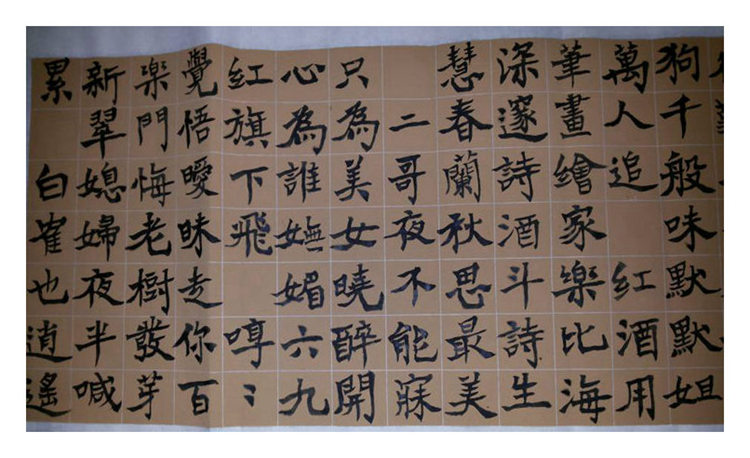 狗千般味默默姐
萬人追 紅酒用
筆畫繪家樂比海
深邃詩酒斗詩生
慧春蘭秋思最美
二哥夜不能寐
只為美女曉醉開
心為誰嫵媚六九
紅旗下飛 哼〻
覺悟曖昧走你百
楽門悔老樹發芽
新翠媳婦夜半喊
累 白崔也逍遙